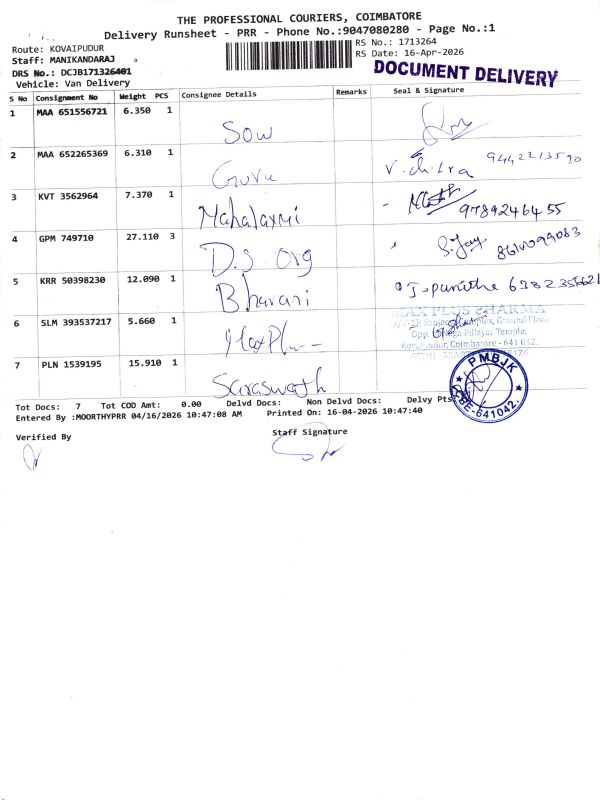 THE PROFESSIONAL COURIERS, COIMBATORE
Delivery Runsheet - PRR - Phone No.:9047080280 - Page No.:1
Route: KOVAIPUDUR
RS No.: 1713264
Staff: MANIKANDARAJ
RS Date: 16-Apr-2026
DRS No.: DCJB171326401
DOCUMENT DELIVERY
Vehicle: Van Delivery
S No Consignment No Weight PCS Consignee Details Remarks Seal & Signature
1 MAA 651556721 6.350 1 Sow
2 MAA 652265369 6.310 1 Guru V. chitra 9442213590
3 KVT 3562964 7.370 1 Mahalaxmi 9789246455
4 GPM 749710 27.110 3 D.S org S.Jay
5 KRR 50398230 12.090 1 Bhavani
6 SLM 393537217 5.660 1 MaxPlus
MAX PLUS PHARMA
Complex, Ground Floor
Temple,
Kovaipudur, Coimbatore - 641 042.
7 PLN 1539195 15.910 1 Saraswath
PMBJK
CBE-641042.
Tot Docs: 7 Tot COD Amt: 0.00 Delvd Docs: Non Delvd Docs: Delvy Pts
Entered By :MOORTHYPRR 04/16/2026 10:47:08 AM Printed On: 16-04-2026 10:47:40
Verified By Staff Signature